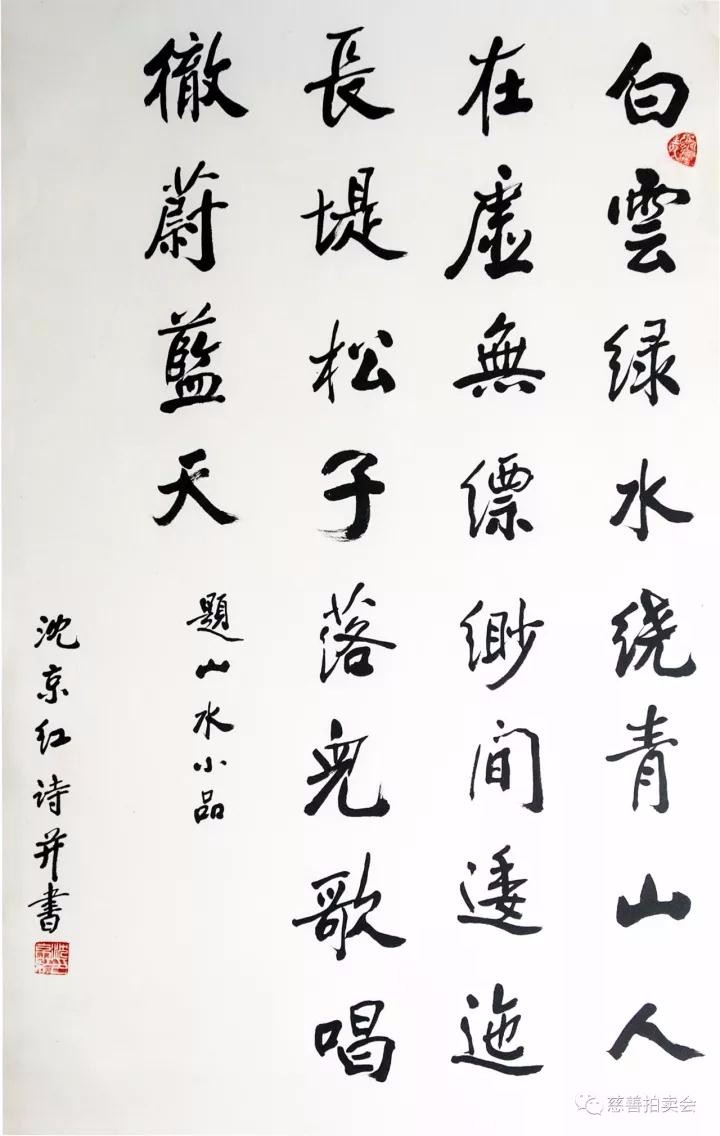 白雲绿水绕青山人
在虚無缥缈间逶迤
長堤松子落兒歌唱
徹蔚藍天
題山水小品
沈京红诗并書
慈善拍卖会